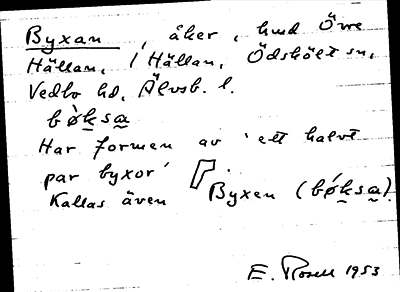 Byxan, åker, hmd Övre
Hällan, / Hällan, Ödskölt sn,
Vedbo hd, Älvsb. l.
bø̀ksa
Har formen av 'ett halvt
par byxor'.
Kallas även Byxen (bǿksa).
E. Rosell 1953